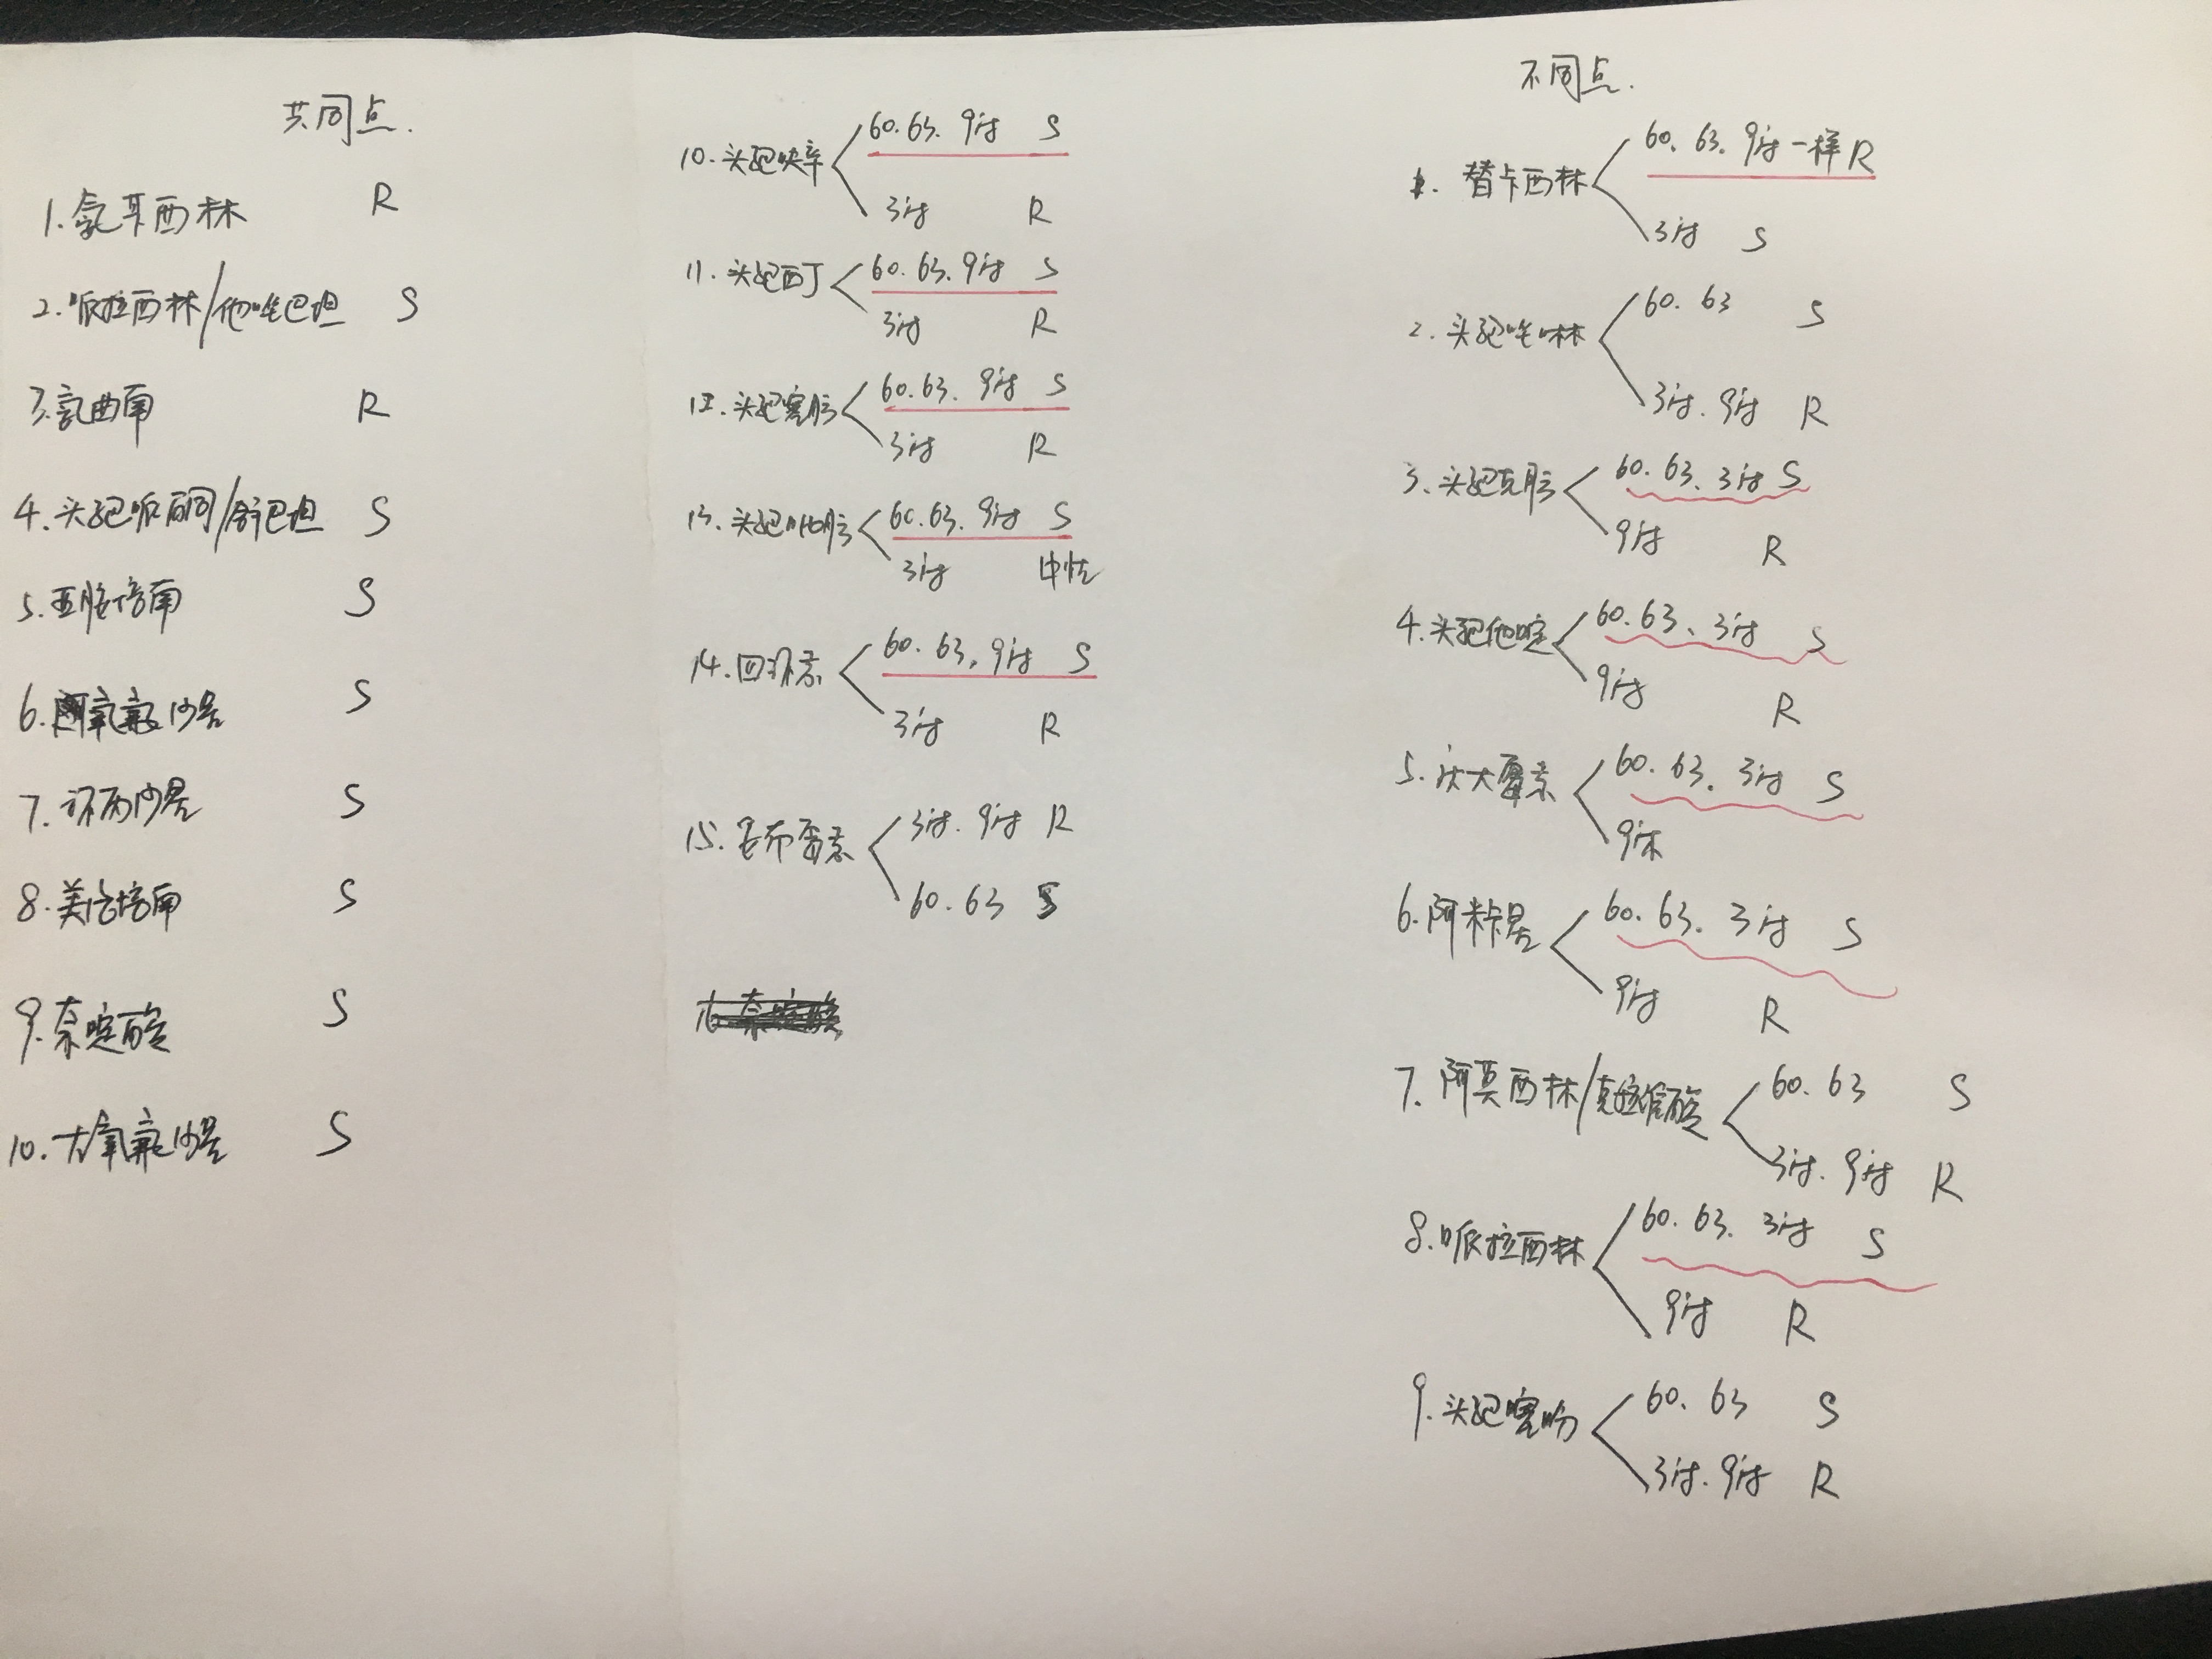 共同点.
1.氨苄西林 R
2.哌拉西林/他唑巴坦 S
3.氨曲南 R
4.头孢哌酮/舒巴坦 S
5.亚胺培南 S
6.氧氟沙星 S
7.环丙沙星 S
8.美洛培南 S
9.奈啶酸 S
10.左氧氟沙星 S
10.头孢呋辛
60.63.9付 S
3付 R
11.头孢西丁
60.63.9付 S
3付 R
12.头孢塞肟
60.63.9付 S
3付 R
13.头孢吡肟
60.63.9付 S
3付 中性
14.四环素
60.63,9付 S
3付 R
15.妥布霉素
3付.9付 R
60.63 S
不同点.
1.替卡西林
60.63.9付一样R
3付 S
2.头孢唑啉
60.63 S
3付.9付 R
3.头孢克肟
60.63、3付 S
9付 R
4.头孢他啶
60.63、3付 S
9付 R
5.庆大霉素
60.63.3付 S
6.阿米卡星
60.63.3付 S
9付 R
7.阿莫西林/克拉维酸
60.63 S
3付.9付 R
8.哌拉西林
60.63.3付 S
9付 R
9.头孢噻吩
60.63 S
3付.9付 R